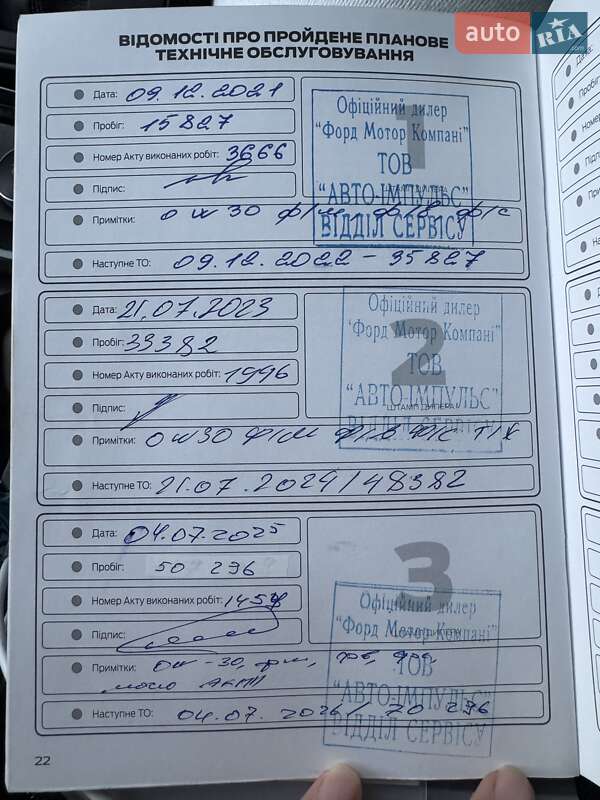 auto RIA .com
ВІДОМОСТІ ПРО ПРОЙДЕНЕ ПЛАНОВЕ
ТЕХНІЧНЕ ОБСЛУГОВУВАННЯ
Дата: 09.12.2021
Пробіг: 15827
Номер Акту виконаних робіт: 3666
Підпис:
Примітки: 0w30 ф/м ф/в ф/с
Наступне ТО: 09.12.2022 - 35827
1
Офіційний дилер
"Форд Мотор Компані"
ТОВ
"АВТО-ІМПУЛЬС"
ВІДДІЛ СЕРВІСУ
Дата: 21.07.2023
Пробіг: 33382
Номер Акту виконаних робіт: 1996
Підпис:
Примітки: 0w30 ф/м ф/в ф/с т/ж
Наступне ТО: 21.07.2024/48382
2
Офіційний дилер
"Форд Мотор Компані"
ТОВ
"АВТО-ІМПУЛЬС"
ШТАМП ДИЛЕРА
ВІДДІЛ СЕРВІСУ
Дата: 04.07.2025
Пробіг: 50 296
Номер Акту виконаних робіт:
Підпис:
Примітки: 0w-30, фм, фв,
Наступне ТО: 04.07.2026/ 296
3
Офіційний дилер
"Форд Мотор Компані"
ТОВ
"АВТО-ІМПУЛЬС"
ВІДДІЛ СЕРВІСУ
22